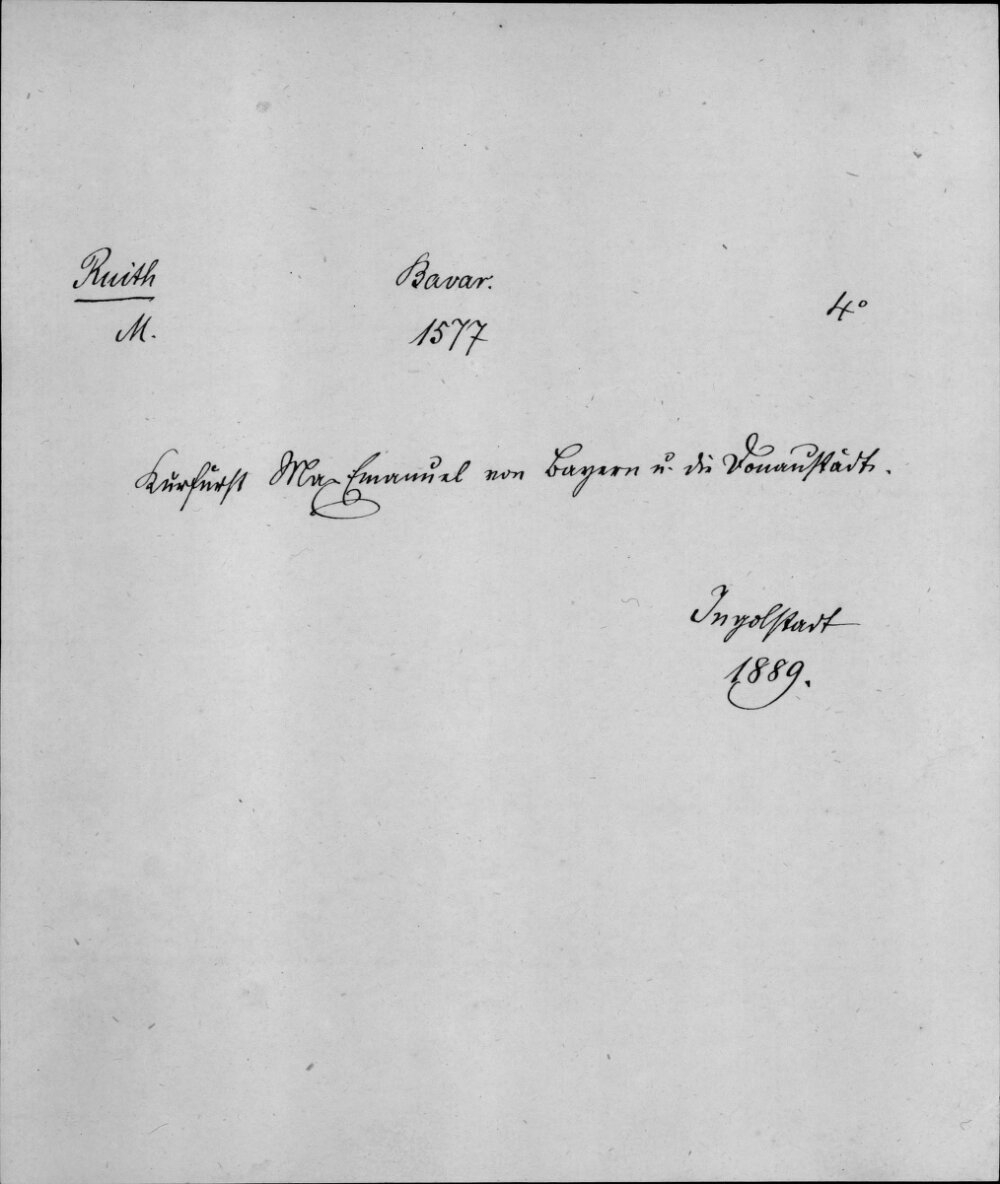 Ruith
M.
Bavar.
1577
4°
Kurfürst Max Emanuel von Bayern u. die Donaustädte.
Ingolstadt
1889.